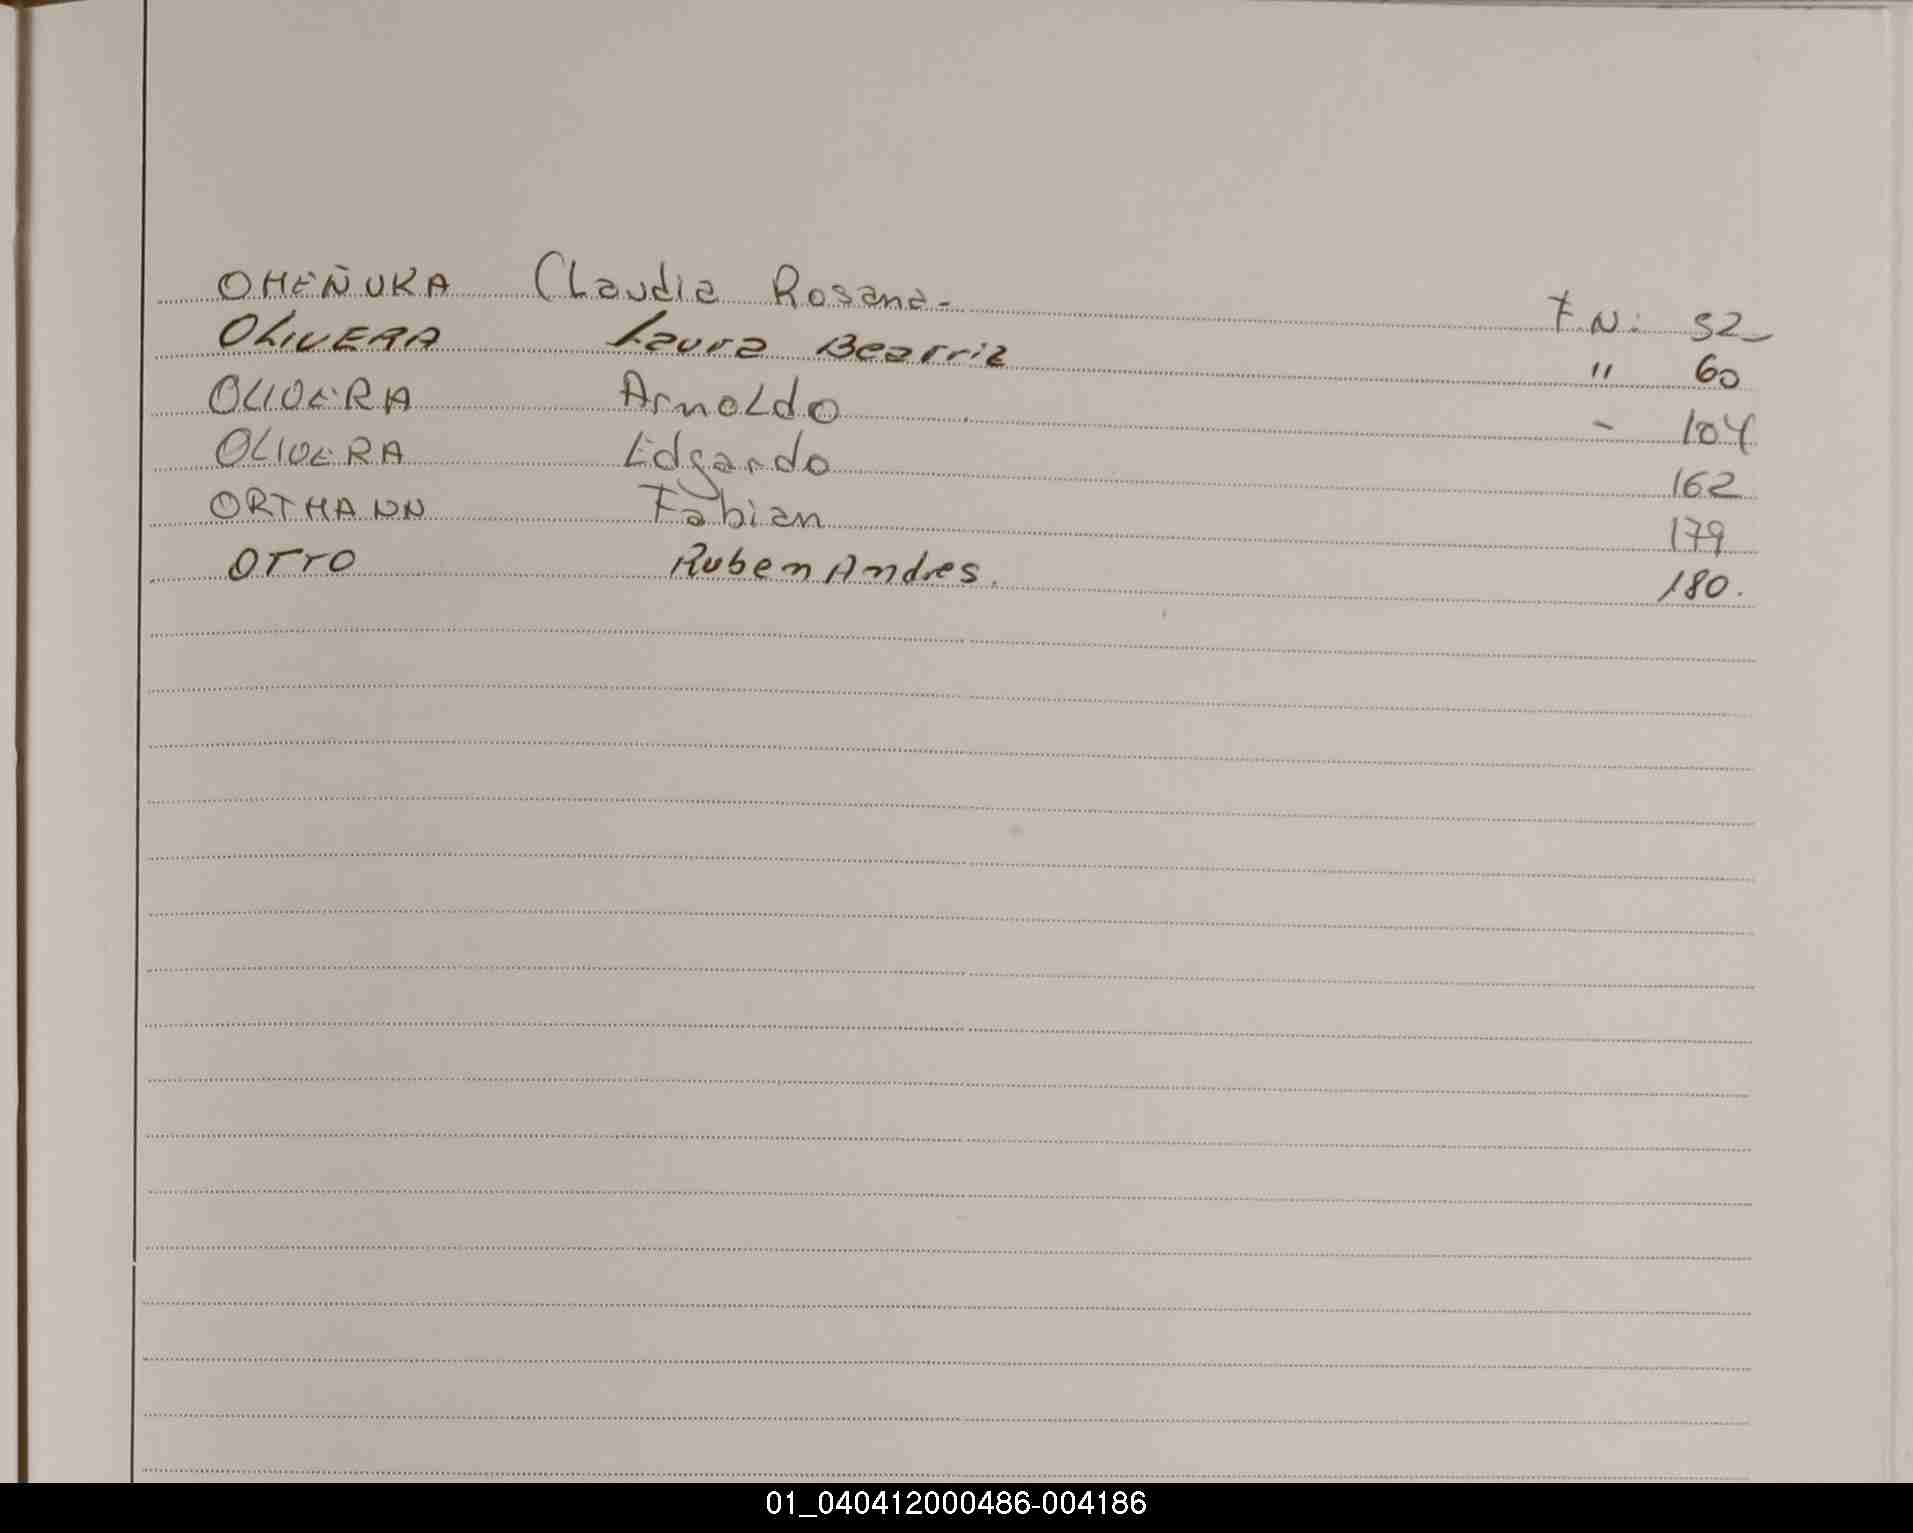 OHEÑUKA Claudia Rosana - F N: 52
OLIVERA Laura Beatriz " 60
OLIVERA Arnoldo - 104
OLIVERA Edgardo 162
ORTMANN Fabian 179
OTTO Ruben Andres. 180.
01_040412000486-004186